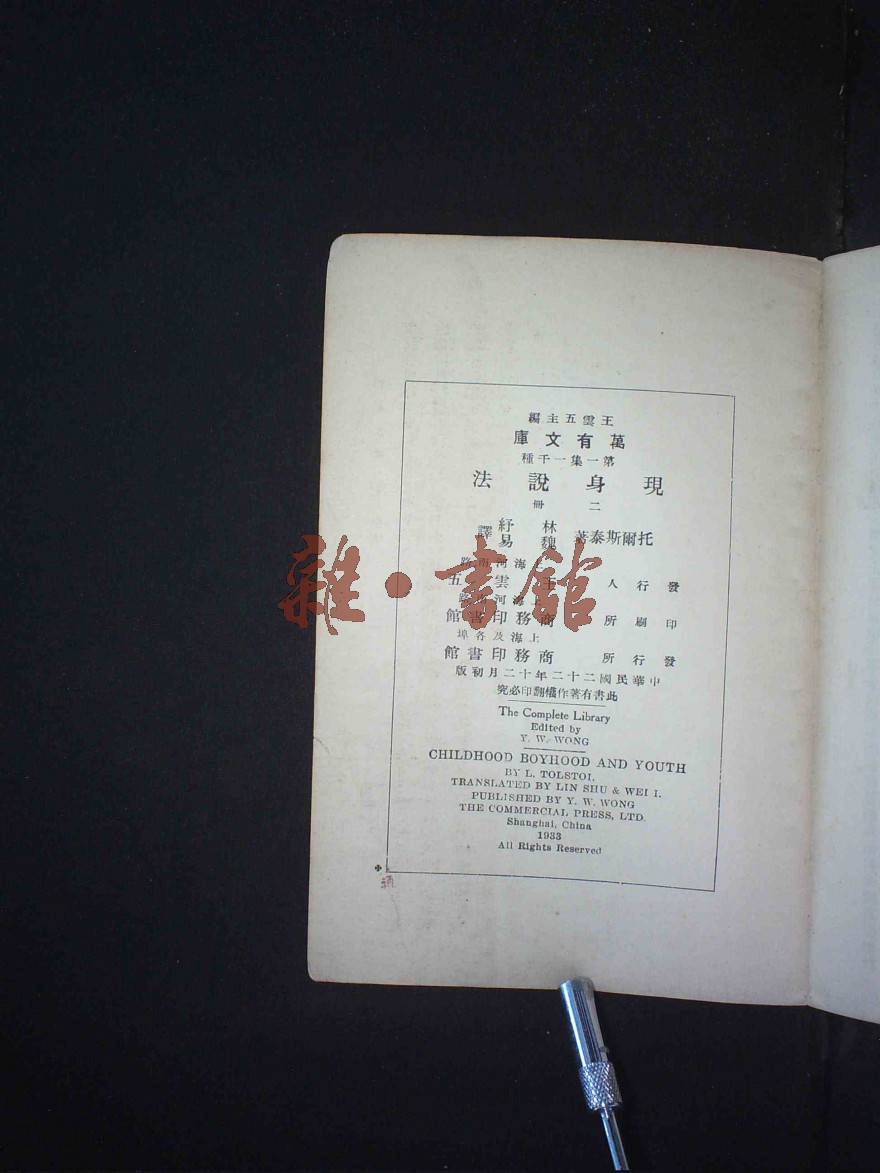 王雲五主編
萬有文庫
第一集一千種
現身說法
二冊
托爾斯泰著 林紓 魏易 譯
上海河南路
發行人 王雲五
上海河南路
印刷所 商務印書館
上海及各埠
發行所 商務印書館
中華民國二十二年十二月初版
此書有著作權翻印必究
The Complete Library
Edited by
Y. W. WONG
CHILDHOOD BOYHOOD AND YOUTH
BY L. TOLSTOI.
TRANSLATED BY LIN SHU & WEI I.
PUBLISHED BY Y. W. WONG
THE COMMERCIAL PRESS, LTD.
Shanghai, China
1933
All Rights Reserved
雜·書館